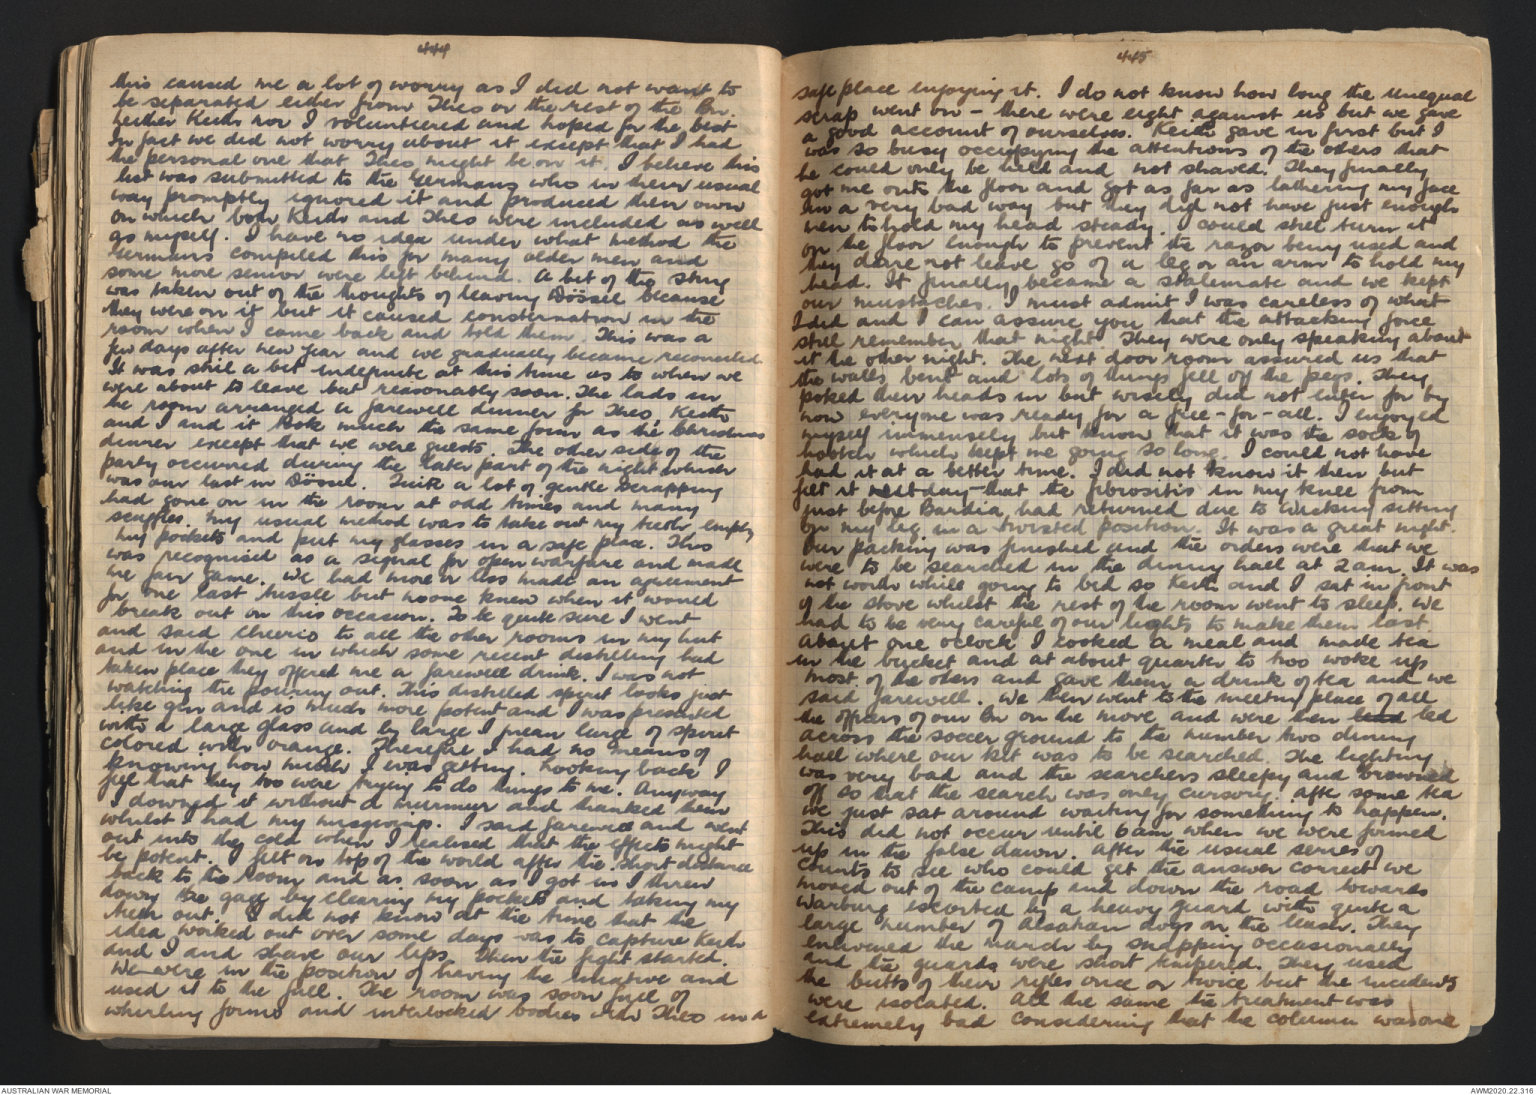 444
this caused me a lot of worry as I did not want to
be separated either from Theo or the rest of the Bn.
Neither Keith nor I volunteered and hoped for the best
In fact we did not worry about it except that I had
the personal one that Theo might be on it. I believe this
list was submitted to the Germans who in their usual
way promptly ignored it and produced their own
on which both Keith and Theo were included as well
as myself. I have no idea under what method the
Germans compiled this for many older men and
some more senior were left behind. A bit of the sting
was taken out of the thoughts of leaving Dössel because
they were on it but it caused consternation in the
room when I came back and told them. This was a
few days after new year and we gradually became reconciled
It was still a bit indefinite at this time as to when we
were about to leave but reasonably soon. The lads in
the room arranged a farewell dinner for Theo, Keith
and I and it took much the same form as the Christmas
dinner except that we were guests. The other side of the
party occurred during the later part of the night which
was our last in Dössel. Quite a lot of gentle scrapping
had gone on in the room at odd times and many
scuffles. My usual method was to take out my teeth, empty
my pockets and put my glasses in a safe place. This
was recognised as a signal for open warfare and made
me fair game. We had more or less made an agreement
for one last tussle but no one knew when it would
break out on this occasion. To be quite sure I went
and said cheerio to all the other rooms in my hut
and in the one in which some recent distilling had
taken place they offered me a farewell drink. I was not
watching the pouring out. This distilled spirit looks just
like gin and is much more potent and I was presented
with a large glass and by large I mean large of spirit
colored with orange. Therefore I had no means of
knowing how much I was getting. Looking back I
feel that they too were trying to do things to me. Anyway
I downed it without a murmur and thanked them
whilst I had my misgivings. I said farewell and went
out into the cold when I realised that the effects might
be potent. I felt on top of the world after the short distance
back to the room and as soon as I got in I threw
down the gage by clearing my pockets and taking my
teeth out. I did not know at the time that the
idea worked out over some days was to capture Keith
and I and shave our lips. Then the fight started.
We were in the position of having the initiative and
used it to the full. The room was soon full of
whirling forms and interlocked bodies with Theo in a
445
safe place enjoying it. I do not know how long the unequal
scrap went on - there were eight against us but we gave
a good account of ourselves. Keith gave in first but I
was so busy occupying the attentions of the others that
he could only be held and not shaved. They finally
got me onto the floor and got as far as lathering my face
in a very bad way but they did not have just enough
men to hold my head steady. I could still turn it
on the floor enough to prevent the razor being used and
they dare not leave go of a leg or an arm to hold my
head. It finally became a stalemate and we kept
our mustaches. I must admit I was careless of what
I did and I can assure you that the attacking force
still remember that night. They were only speaking about
it the other night. The next door room assured us that
the walls bent and lots of things fell off the pegs. They
poked their heads in but wisely did not enter for by
now everyone was ready for a free-for-all. I enjoyed
myself immensely but know that it was the sock of
hootch which kept me going so long. I could not have
had it at a better time. I did not know it then but
felt it next day - that the fibrositis in my knee from
just before Bardia, had returned due to Wiskin sitting
on my leg in a twisted position. It was a great night.
Our packing was finished and the orders were that we
were to be searched in the dining hall at 2am. It was
not worth while going to bed so Keith and I sat in front
of the stove whilst the rest of the room went to sleep. We
had to be very careful of our lights to make them last.
About one oclock I cooked a meal and made tea
in the bucket and at about quarter to two woke up
most of the others and gave them a drink of tea and we
said farewell. We then went to the meeting place of all
the officers of our Bn on the move and were then lead led
across the soccer ground to the number two dining
hall where our kit was to be searched. The lighting
was very bad and the searchers sleepy and browned
off so that the search was only cursory. After some tea
we just sat around waiting for something to happen.
This did not occur until 6am when we were formed
up in the false dawn. After the usual series of
counts to see who could get the answer correct we
moved out of the camp and down the road towards
Warburg escorted by a heavy guard with quite a
large number of Alsatian dogs on the leash. They
enlivened the march by snapping occasionally
and the guards were short tempered. They used
the butts of their rifles once or twice but the incidents
were isolated. All the same the treatment was
extremely bad considering that the column was one
AUSTRALIAN WAR MEMORIAL
AWM2020.22.316